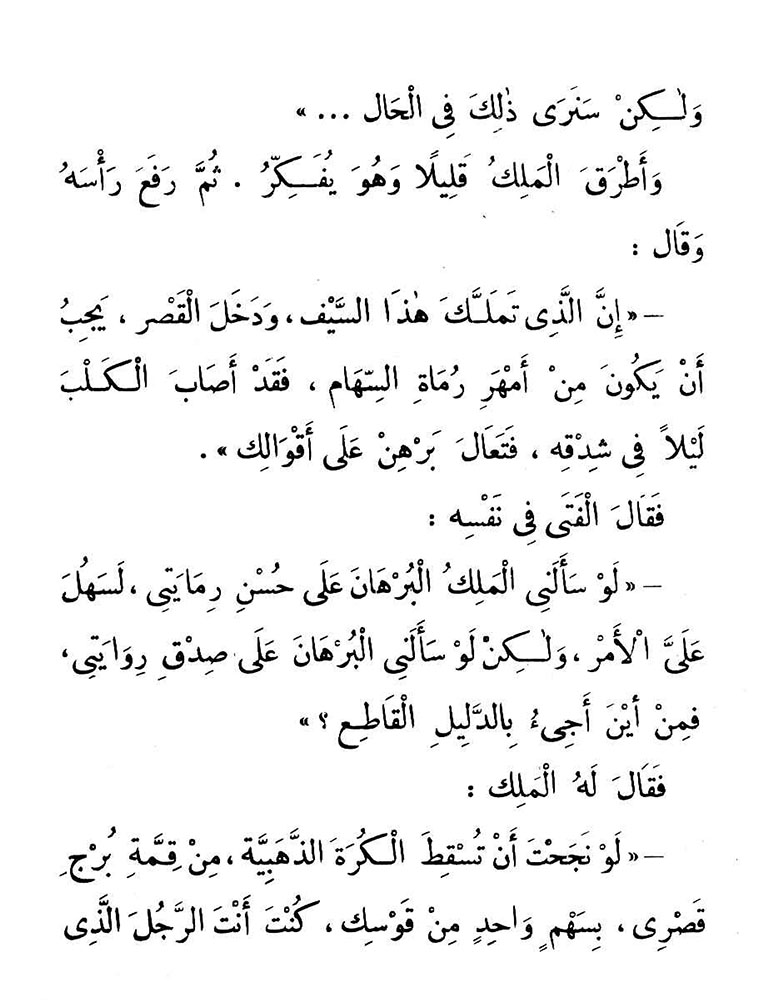 وَلٰكِنْ سَنَرَى ذٰلِكَ فِي الْحَال ... »
وَأَطْرَقَ الْمَلِكُ قَلِيلًا وَهُوَ يُفَكِّرُ . ثُمَّ رَفَعَ رَأْسَهُ
وَقَال :
— « إِنَّ الَّذِى تَملَّكَ هٰذَا السَّيْف ، وَدَخَلَ الْقَصْر ، يَجِبُ
أَنْ يَكُونَ مِنْ أَمْهَرِ رُمَاةِ السِّهَام ، فَقَدْ أَصَابَ الْكَلْبَ
لَيْلاً فِى شِدْقِه ، فَتَعَالَ بَرْهِنْ عَلَى أَقْوَالِك » .
فَقَالَ الْفَتَى فِى نَفْسِه :
— « لَوْ سَأَلَنِى الْمَلِكُ الْبُرْهَانَ عَلَى حُسْنِ رِمَايَتِى ، لَسَهُلَ
عَلَىَّ الْأَمْرْ ، وَلٰكِنْ لَوْ سَأَلَنِى الْبُرْهَانَ عَلَى صِدْقِ رِوَايَتِى ،
فَمِنْ أَيْنَ أَجِىءُ بِالدَّلِيلِ الْقَاطِع ؟ »
فَقَالَ لَهُ الْمَلِك :
— « لَوْ نَجَحْتَ أَنْ تُسْقِطَ الْكُرَةَ الذَّهَبِيَّة ، مِنْ قِمَّةِ بُرْجِ
قَصْرِى ، بِسَهْمٍ وَاحِدٍ مِنْ قَوْسِك ، كُنْتَ أَنْتَ الرَّجُلَ الَّذِى